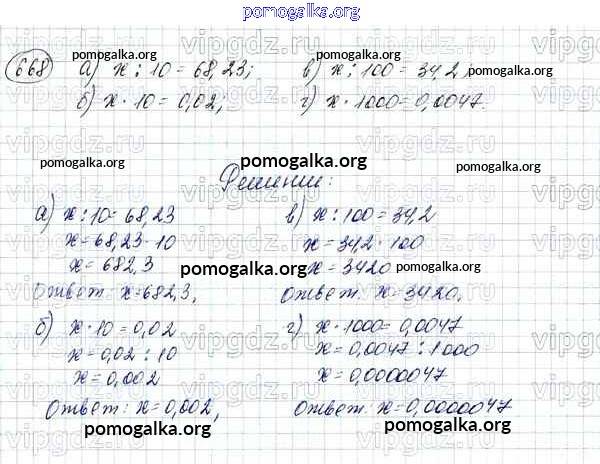 pomogalka.org
668 а) x : 10 = 68,23; в) x : 100 = 34,2
б) x · 10 = 0,02; г) x · 1000 = 0,0047.
Решении:
а) x : 10 = 68,23
x = 68,23 · 10
x = 682,3
Ответ: x = 682,3,
в) x : 100 = 34,2
x = 34,2 · 100
x = 3420
Ответ: x = 3420,
б) x · 10 = 0,02
x = 0,02 : 10
x = 0,002
Ответ: x = 0,002,
г) x · 1000 = 0,0047
x = 0,0047 : 1000
x = 0,0000047
Ответ: x = 0,0000047
pomogalka.org
pomogalka.org
pomogalka.org
pomogalka.org
pomogalka.org
pomogalka.org
pomogalka.org
pomogalka.org
pomogalka.org
pomogalka.org
vipgdz.ru